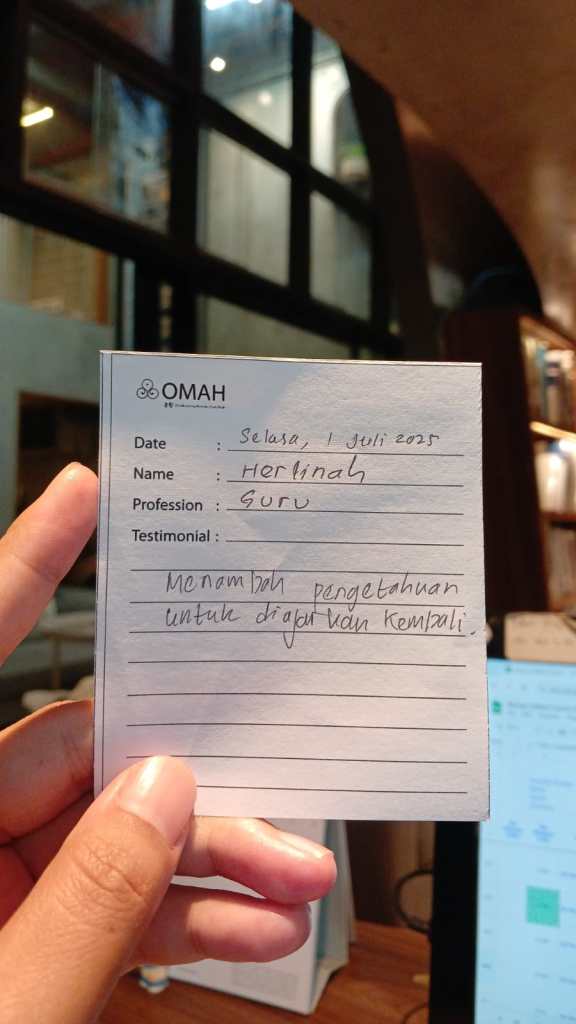 OMAH
Date : Selasa, 1 Juli 2025
Name : Herlinah
Profession : Guru
Testimonial :
Menambah pengetahuan
untuk diajarkan kembali.